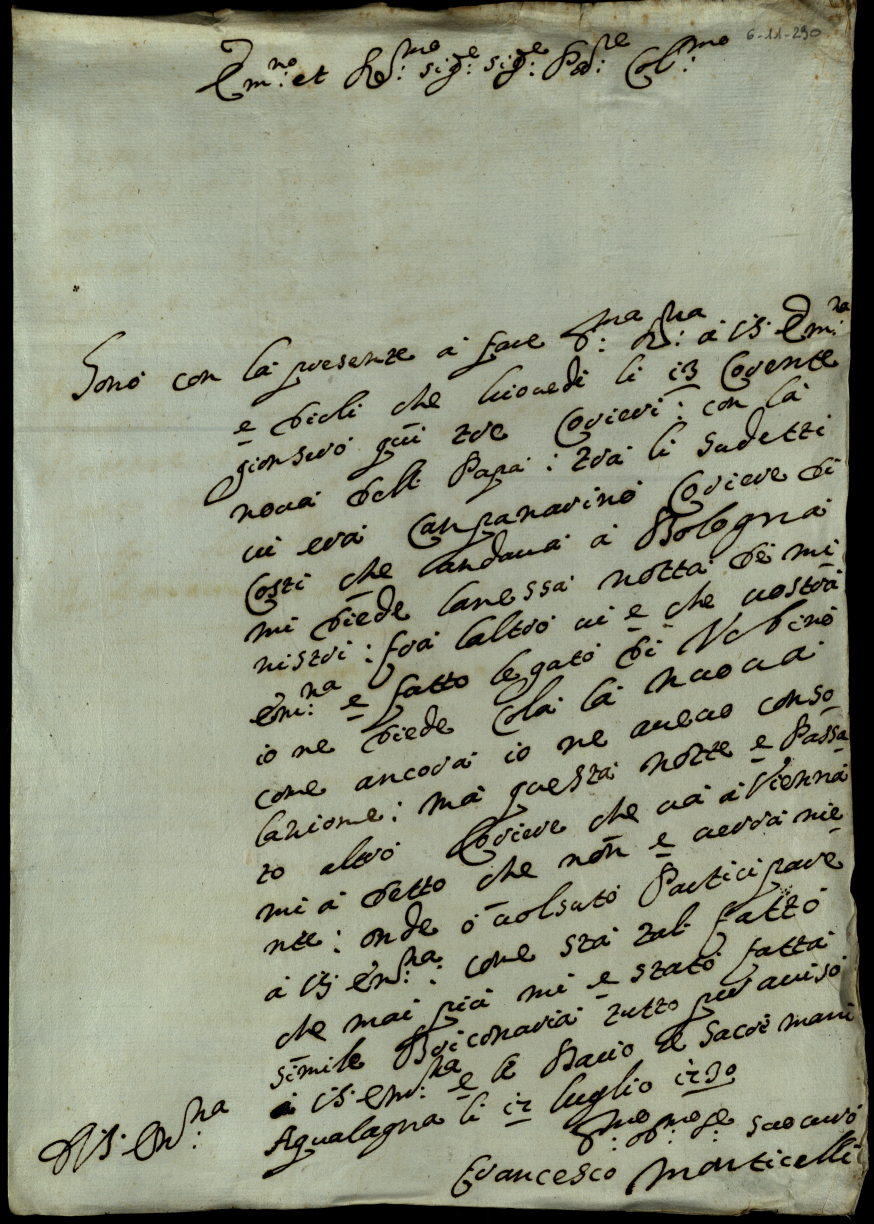 6-11-290
Em.no et R.mo sig.re sig.re Pad.re Col.mo
Sono con la presente a fare D.ma R.na a V.S. Em.za
e dirli che Giovedi li 13 Corente
gionsero qui tre Corieri: con la
nova dell Papa: tra li sudetti
vi era Campanarino Coriere di
Costi che landava a Bologna
mi diede lanessa notta dei mi
nistri: fra laltro vi e che vostra
em.na e fatto legato di Vrbino
io ne diede cola la nuova
come ancora io ne avevo conso
latione: ma questa notte e Passa
to altro Coriere che va a Vienna
mi a detto che non e verra nie
nte: onde o volsuto Participare
a V.S. Em.na: come sta tal fatto
che mai piu mi e stato fatta
simile Briconaria tutto per aviso
a V.S. em.na e le Bacio le Sacre mani
Aqualagna li 17 luglio 1730
Di V.S. Em.na
D.mo Ob.mo Se. suo vero
Francesco Monticelli